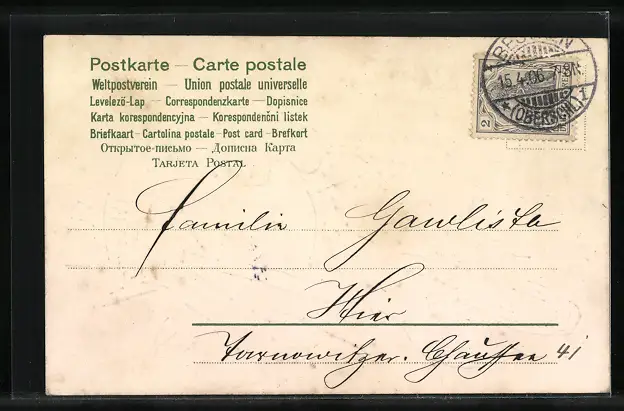 Postkarte — Carte postale
Weltpostverein — Union postale universelle
Levelező-Lap — Correspondenzkarte — Dopisnice
Karta korespondencyjna — Korespondenční lístek
Briefkaart - Cartolina postale - Post card - Brefkort
Открытое-письмо — Дописна Карта
Tarjeta Postal
BEUTHEN
15.4.06
(OBERSCHL.) 1
2
Familie Gawlista
Hier
Tarnowitzer. Chaussee 41